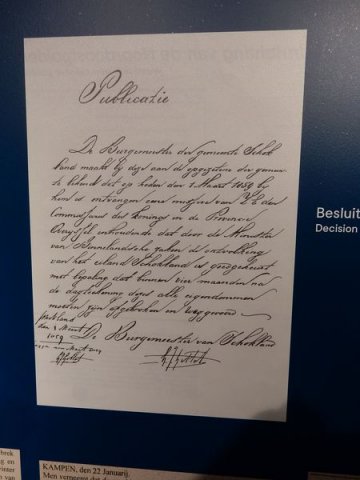 Publicatie
De Burgemeester der gemeente Schok
land maakt bij deze aan de ingezetene der gemeen
te bekend dat op heden den 1 Maart 1859 bij
hem is ontvangen eene missive van Z E den
Commissaris des Konings in de Provincie
Overyssel inhoudende dat door de Minister
van Binnenlandsche zaken de ontruiming
van het eiland Schokland is goedgekeurd
met bepaling dat binnen vier maanden na
de dagtekening dezes alle eigendommen
moeten zijn afgebroken en weggevoerd
Schokland
den 1 Maart
1859
De Burgemeester van Schokland
Besluit
Decision
KAMPEN, den 22 Januarij.
Men verneemt dat